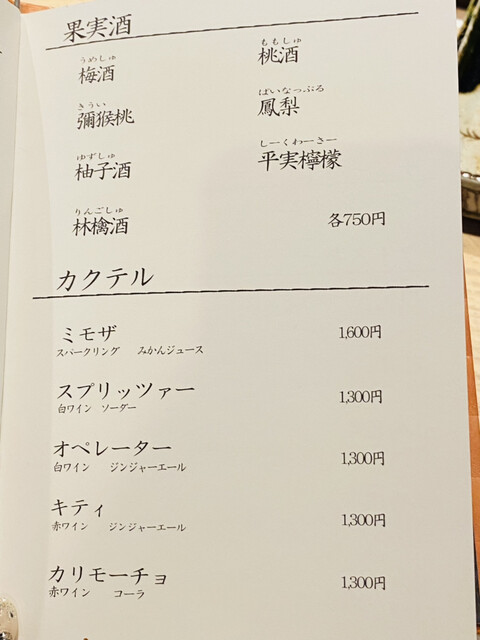 果実酒
うめしゅ
梅酒
ももしゅ
桃酒
きうい
彌猴桃
ぱいなっぷる
鳳梨
ゆずしゅ
柚子酒
しーくわーさー
平実檸檬
りんごしゅ
林檎酒
各750円
カクテル
ミモザ 1,600円
スパークリング みかんジュース
スプリッツァー 1,300円
白ワイン ソーダー
オペレーター 1,300円
白ワイン ジンジャーエール
キティ 1,300円
赤ワイン ジンジャーエール
カリモーチョ 1,300円
赤ワイン コーラ